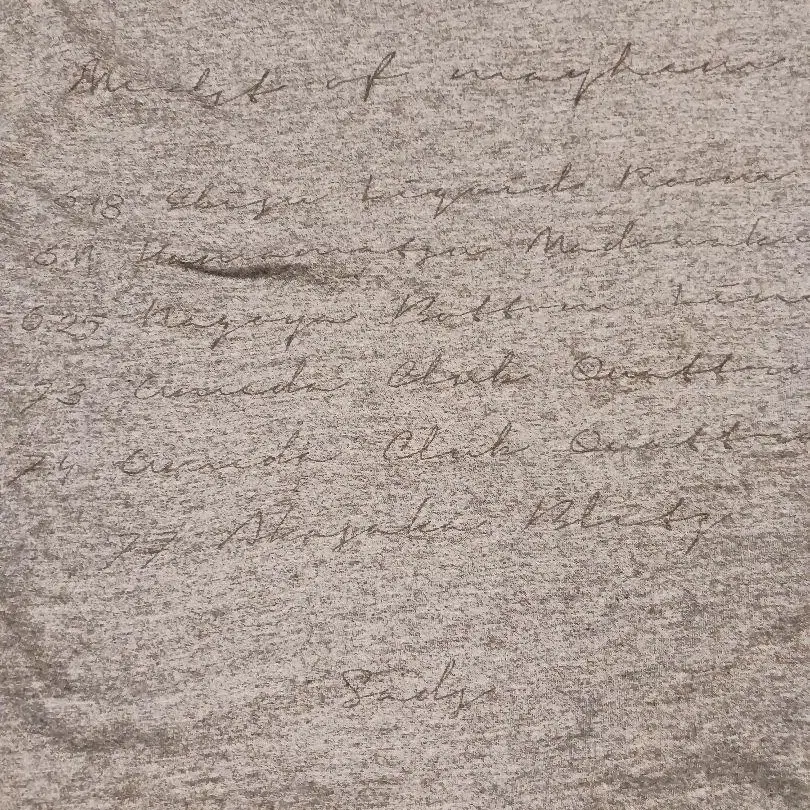 Midst of mayhem
6.18 Ebisu Liquid Room
6.19 Hamamatsu Madowaku
6.25 Nagoya Bottom Line
7.3 Umeda Club Quattro
7.4 Umeda Club Quattro
7.7 Akasaka Blitz
Sads